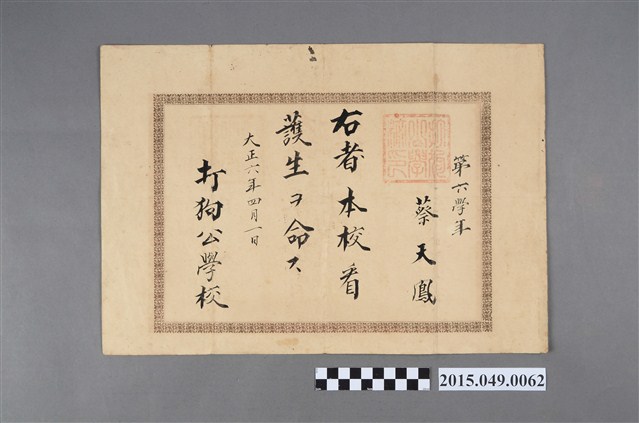 第六學年
蔡天鳳
右者本校看
護生ヲ命ス
大正六年四月一日
打狗公學校
2015.049.0062